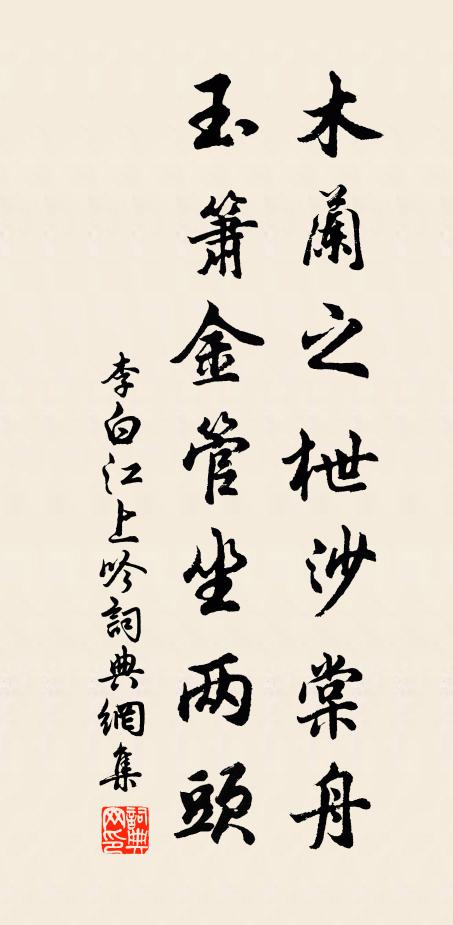 木蘭之枻沙棠舟
玉簫金管坐两頭
李白江上吟詞典網集
詞典网印